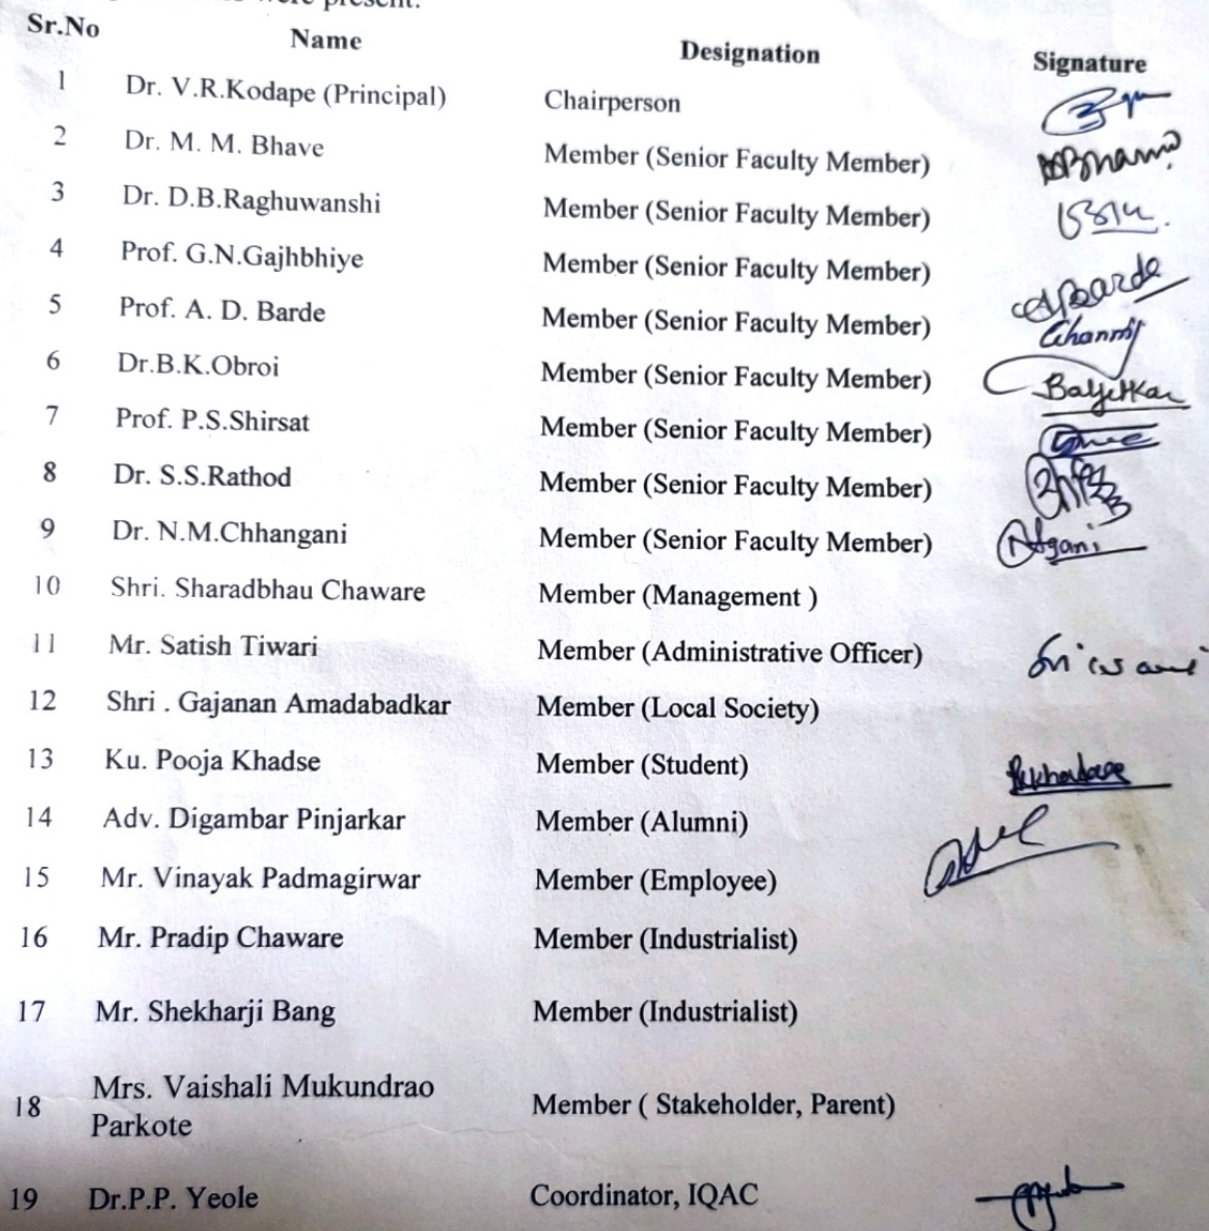 were present.
Sr.No Name Designation Signature
1 Dr. V.R.Kodape (Principal) Chairperson
2 Dr. M. M. Bhave Member (Senior Faculty Member)
3 Dr. D.B.Raghuwanshi Member (Senior Faculty Member)
4 Prof. G.N.Gajhbhiye Member (Senior Faculty Member)
5 Prof. A. D. Barde Member (Senior Faculty Member)
6 Dr.B.K.Obroi Member (Senior Faculty Member)
7 Prof. P.S.Shirsat Member (Senior Faculty Member)
8 Dr. S.S.Rathod Member (Senior Faculty Member)
9 Dr. N.M.Chhangani Member (Senior Faculty Member)
10 Shri. Sharadbhau Chaware Member (Management )
11 Mr. Satish Tiwari Member (Administrative Officer)
12 Shri . Gajanan Amadabadkar Member (Local Society)
13 Ku. Pooja Khadse Member (Student)
14 Adv. Digambar Pinjarkar Member (Alumni)
15 Mr. Vinayak Padmagirwar Member (Employee)
16 Mr. Pradip Chaware Member (Industrialist)
17 Mr. Shekharji Bang Member (Industrialist)
18 Mrs. Vaishali Mukundrao
Parkote Member ( Stakeholder, Parent)
19 Dr.P.P. Yeole Coordinator, IQAC